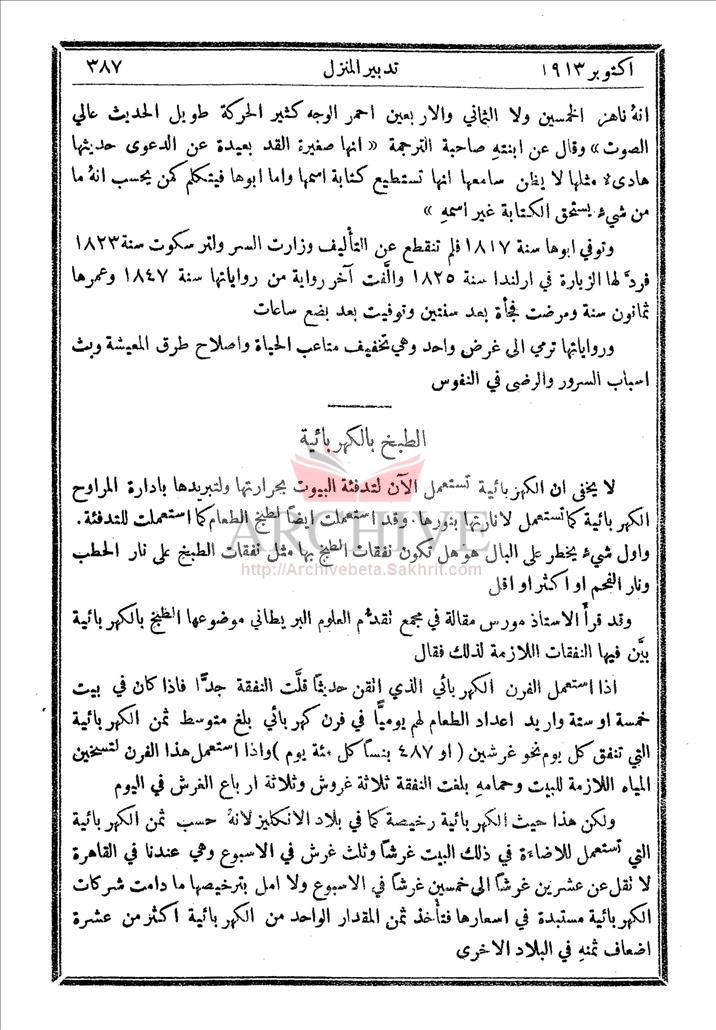 اكتوبر ١٩١٣ تدبير المنزل ٣٨٧
انهُ ناهز الخمسين ولا الثماني والاربعين احمر الوجه كثير الحركة طويل الحديث عالي
الصوت » وقال عن ابنتهِ صاحبة الترجمة « انها صغيرة القد بعيدة عن الدعوى حديثها
هادىء مثلها لا يظن سامعها انها تستطيع كتابة اسمها واما ابوها فيتكلم كمن يحسب انهُ ما
من شيء يستحق الكتابة غير اسمهِ »
وتوفي ابوها سنة ١٨١٧ فلم تنقطع عن التأليف وزارت السر ولتر سكوت سنة ١٨٢٣
فردَّ لها الزيارة في ارلندا سنة ١٨٢٥ والَّفت آخر رواية من رواياتها سنة ١٨٤٧ وعمرها
ثمانون سنة ومرضت فجأة بعد سنتين وتوفيت بعد بضع ساعات
ورواياتها ترمي الى غرض واحد وهي تخفيف متاعب الحياة واصلاح طرق المعيشة وبث
اسباب السرور والرضى في النفوس
الطبخ بالكهربائية
لا يخفى ان الكهربائية تستعمل الآن لتدفئة البيوت بحرارتها ولتبريدها بادارة المراوح
الكهربائية كما تستعمل لانارتها بنورها. وقد استعملت ايضاً لطبخ الطعام كما استعملت للتدفئة.
واول شيء يخطر على البال هو هل تكون نفقات الطبخ بها مثل نفقات الطبخ على نار الحطب
ونار الفحم او اكثر او اقل
ARCHIVE
http://Archivebeta.Sakhrit.com
وقد قرأ الاستاذ مورس مقالة في مجمع تقدُّم العلوم البريطاني موضوعها الطبخ بالكهربائية
بيَّن فيها النفقات اللازمة لذلك فقال
اذا استعمل الفرن الكهربائي الذي اتقن حديثاً قلَّت النفقة جدًّا فاذا كان في بيت
خمسة او ستة واريد اعداد الطعام لهم يوميًّا في فرن كهربائي بلغ متوسط ثمن الكهربائية
التي تنفق كل يوم نحو غرشين ( او ٤٨٧ بنساً كل مئة يوم ) واذا استعمل هذا الفرن لتسخين
المياه اللازمة للبيت وحمامهِ بلغت النفقة ثلاثة غروش وثلاثة ارباع الغرش في اليوم
ولكن هذا حيث الكهربائية رخيصة كما في بلاد الانكليز لانهُ حسب ثمن الكهربائية
التي تستعمل للاضاءة في ذلك البيت غرشاً وثلث غرش في الاسبوع وهي عندنا في القاهرة
لا تقل عن عشرين غرشاً الى خمسين غرشاً في الاسبوع ولا امل بترخيصها ما دامت شركات
الكهربائية مستبدة في اسعارها فتأخذ ثمن المقدار الواحد من الكهربائية اكثر من عشرة
اضعاف ثمنهِ في البلاد الاخرى